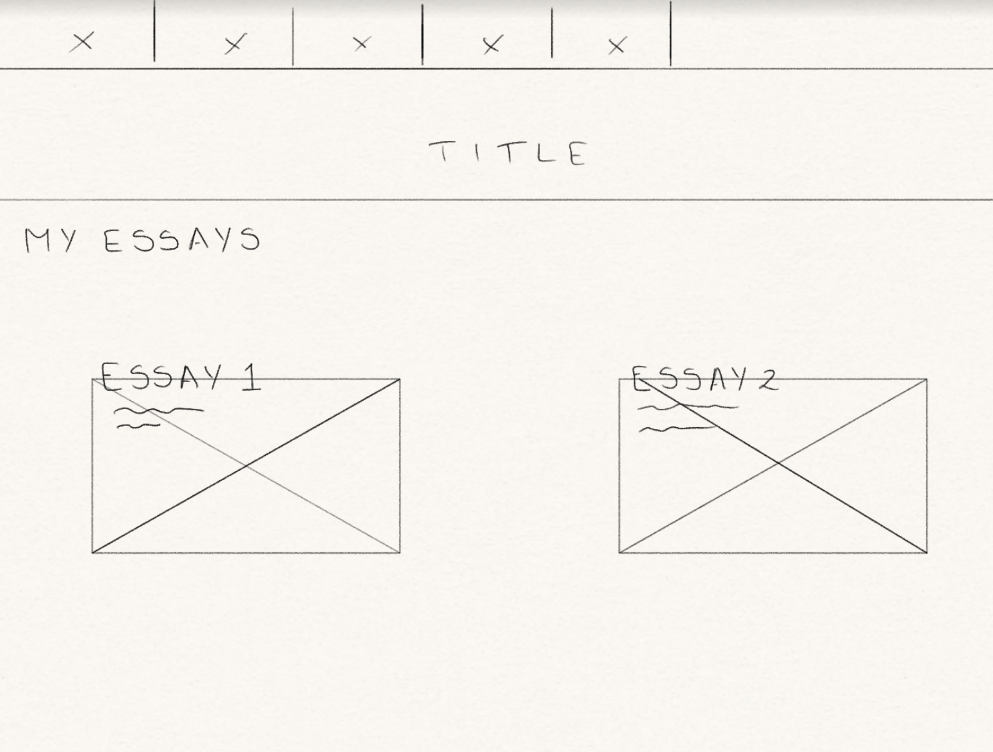 TITLE
MY ESSAYS
ESSAY 1
ESSAY 2